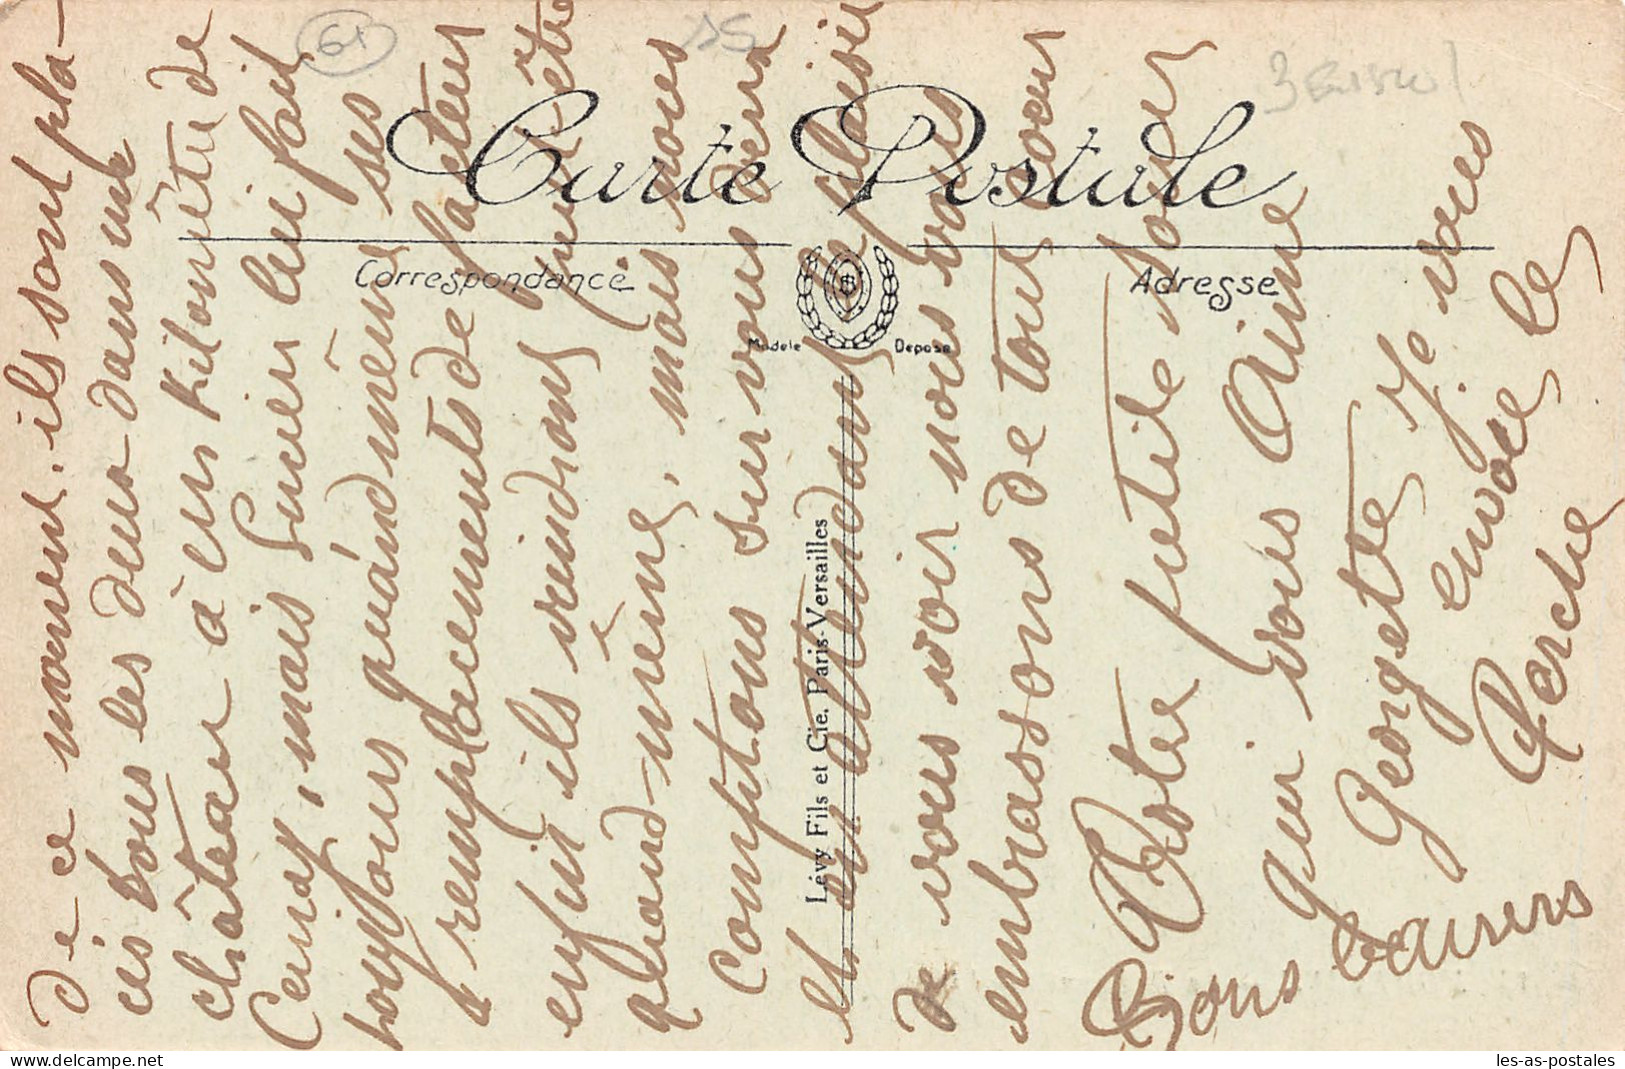 61
Carte Postale
Correspondance
Adresse
Modele Depose
Lévy Fils et Cie, Paris-Versailles
de ce moment, ils sont pla-
cés tous les deux dans une
château à un kilomètre de
Ceray, mais Lucien lui fait
toujours quand même ses
remplacements de facteur
enfin ils viendront peut-être
quand même, mais nous
comptons sur vous
et en attendant le plaisir
de vous voir nous vous
embrassons de tout cœur
Votre petite sœur
qui vous aime
Georgette
Je vous
envoie le
Perche
Bons baisers
les-as-postales.com
les-as-postales